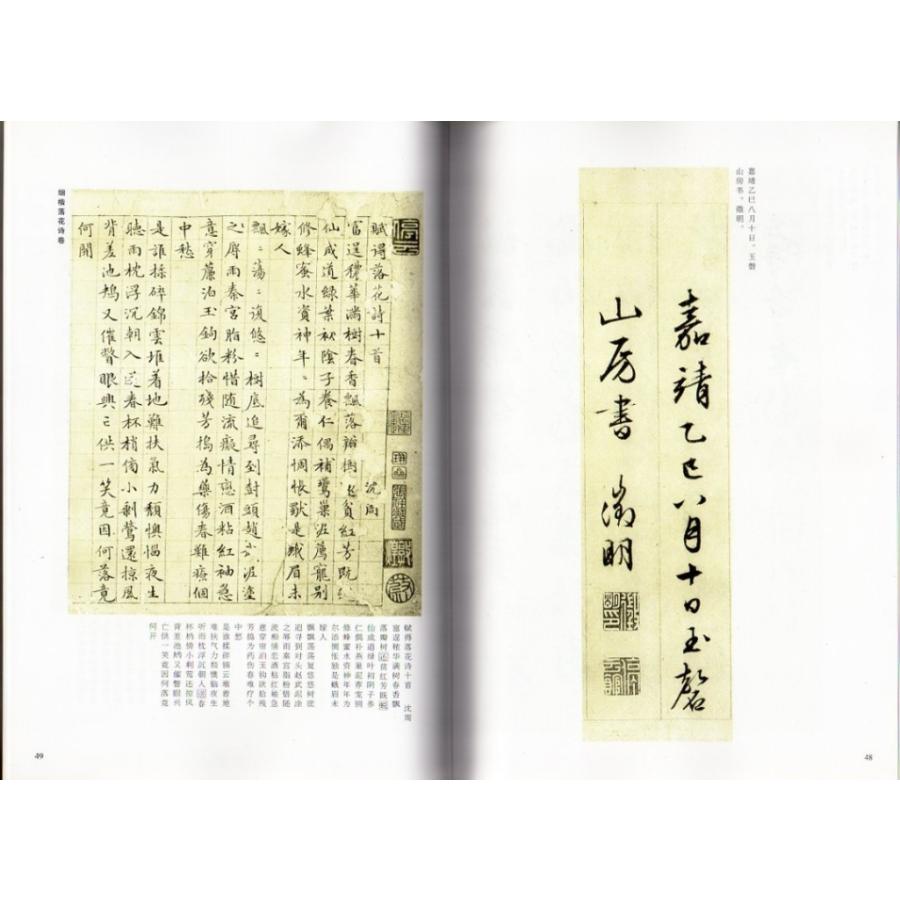 嘉靖乙巳八月十日，玉磬
山房书。徵明。
嘉靖乙巳八月十日玉磬
山房書 徵明
48
细楷落花诗卷
賦得落花詩十首
沈周
富逞穠華滿樹春香飄落瓣樹還貧紅芳既
仙成道綠葉初陰子養仁偶補鶯巢泥薦寵別
修蜂蜜水資神年〻為爾添惆悵獸是蛾眉未
嫁人
飄〻蕩〻復悠〻樹底追尋到對頭趙武泥塗
之辱雨秦宮脂粉惜随流癡情戀酒粘紅袖急
意穿簾泊玉鉤欲拾殘芳搗為藥傷春難療個
中愁
是誰揉碎錦雲堆着地難扶氣力頹懊惱夜生
聽雨枕浮沉朝入送春杯梢傍小剩鶯還掠風
背差池鳩又催瞥眼興亡供一笑竟因何落竟
何開
赋得落花诗十首 沈周
富逞秾华满树春香飘
落瓣树还贫红芳既蜕
仙成道绿叶初阴子
仁偶补燕巢泥荐宠别
修蜂蜜水资神年年为
尔添惆怅独是娥眉未
嫁人
飘飘荡荡复悠悠树底
追寻到对头赵武泥涂
之辱雨秦宫脂粉惜随
流痴情恋酒粘红袖急
意穿帘泊玉钩欲拾残
芳捣为药伤春难疗个
中愁
是谁揉碎锦云堆着地
难扶气力颓懊恼夜生
听雨枕浮沉朝入送春
杯梢傍小剩莺还掠风
背差池鸠又催瞥眼兴
亡供一笑竟因何落竟
何开
49